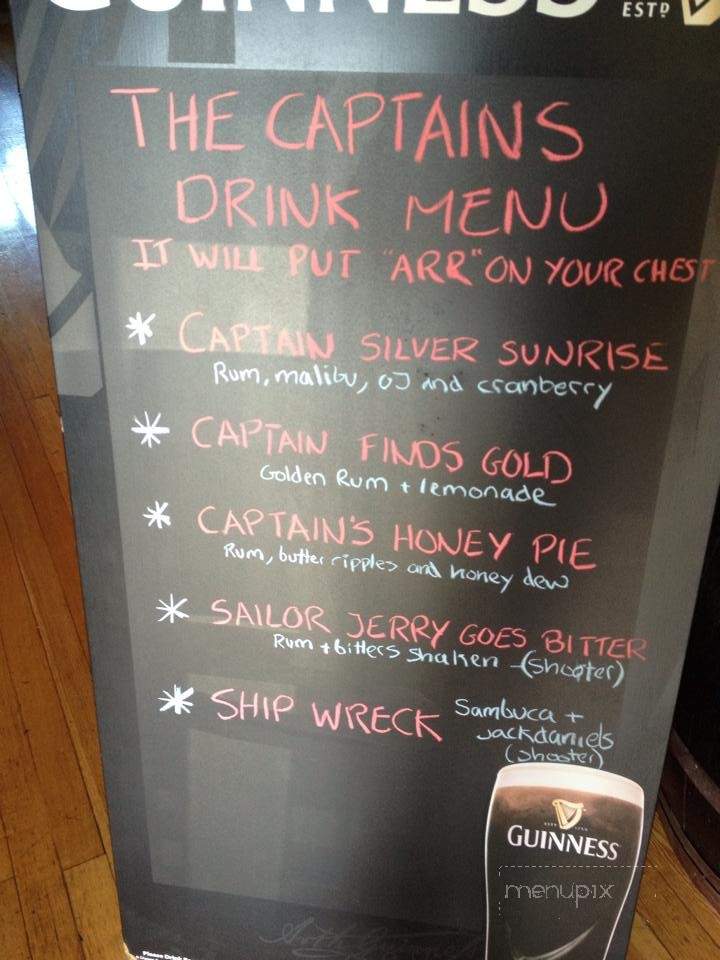 GUINNESS
ESTD
THE CAPTAINS
DRINK MENU
IT WILL PUT "ARR" ON YOUR CHEST
* CAPTAIN SILVER SUNRISE
Rum, malibu, OJ and cranberry
* CAPTAIN FINDS GOLD
Golden Rum + lemonade
* CAPTAIN'S HONEY PIE
Rum, butter ripples and honey dew
* SAILOR JERRY GOES BITTER
Rum + bitters shaken - (shooter)
* SHIP WRECK Sambuca +
jackdaniels
(shooter)
GUINNESS
menupix
Please Drink